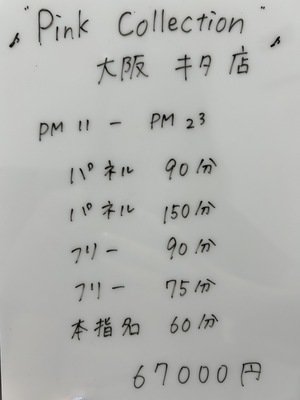 "Pink Collection"
大阪 キタ店
PM 11 - PM 23
パネル 90分
パネル 150分
フリー 90分
フリー 75分
本指名 60分
67000円